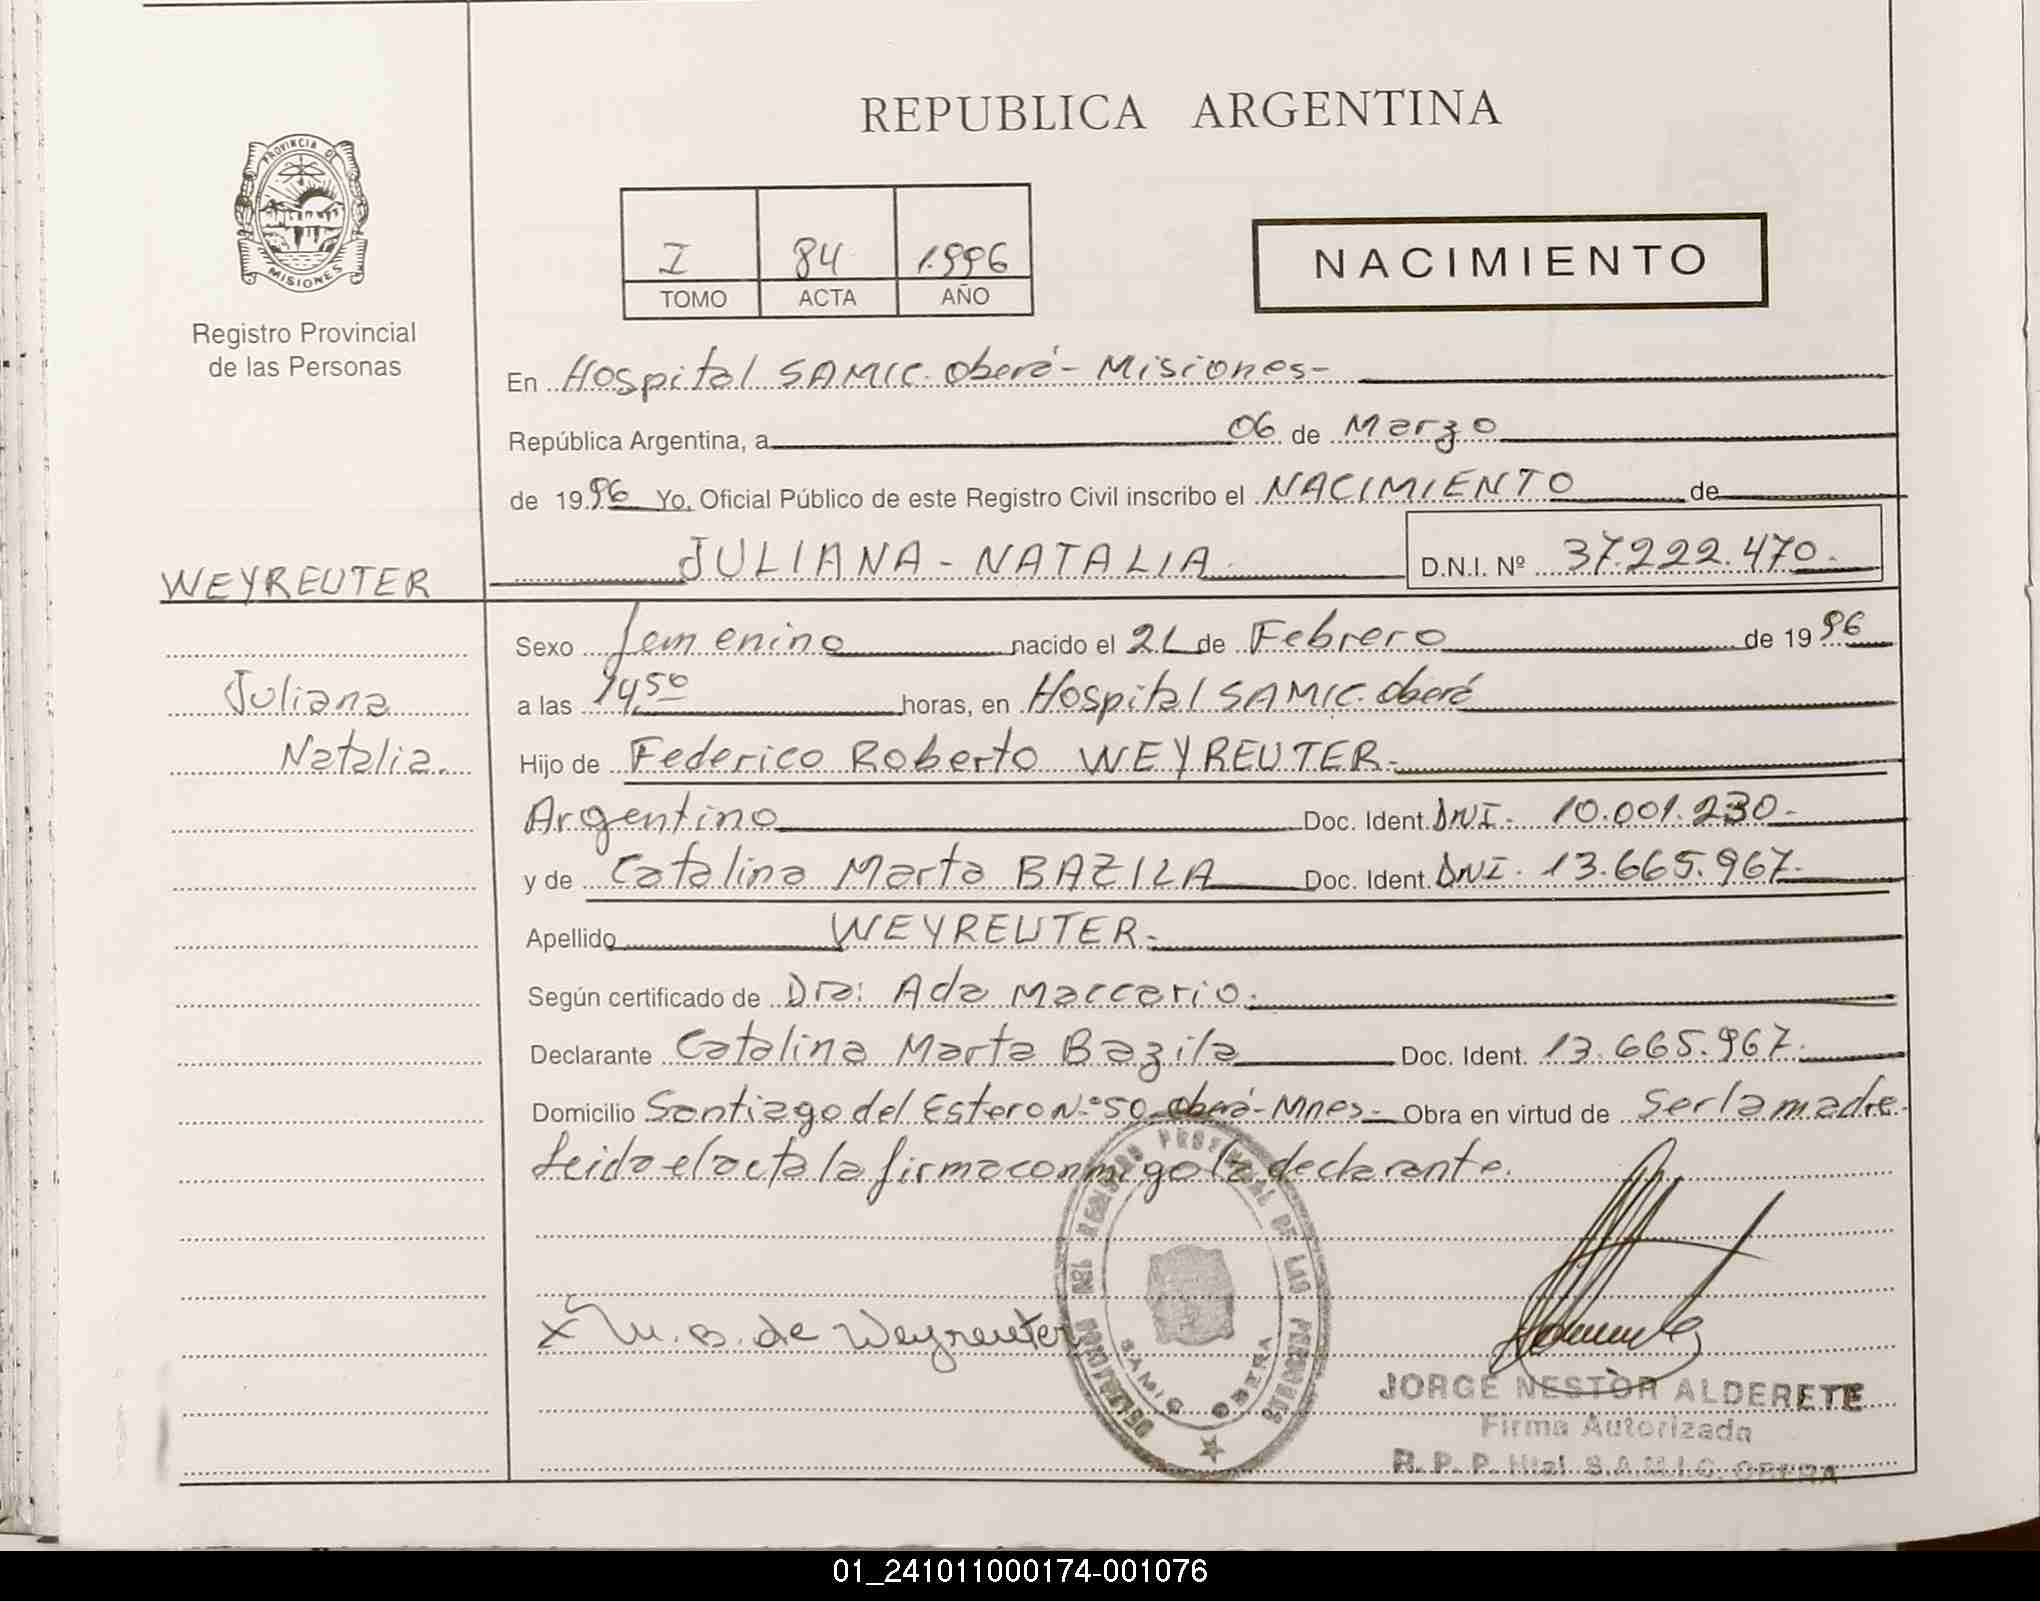 REPUBLICA ARGENTINA
PROVINCIA DE
MISIONES
Registro Provincial
de las Personas
I 84 1.996
TOMO ACTA AÑO
NACIMIENTO
En Hospital SAMIC. Oberá - Misiones -
República Argentina, a 06 de Marzo
de 1996 Yo, Oficial Público de este Registro Civil inscribo el NACIMIENTO de
JULIANA - NATALIA D.N.I. Nº 37.222.470.
WEYREUTER
Juliana
Natalia.
Sexo femenino nacido el 21 de Febrero de 1996
a las 14,50 horas, en Hospital SAMIC. Oberá
Hijo de Federico Roberto WEYREUTER -
Argentino Doc. Ident. DNI - 10.001.230 -
y de Catalina Marta BAZILA Doc. Ident. DNI. 13.665.967.
Apellido WEYREUTER -
Según certificado de Dra: Ada Maccario.
Declarante Catalina Marta Bazila Doc. Ident. 13.665.967.
Domicilio Santiago del Estero N.º 50 - Oberá - Mnes - Obra en virtud de ser la madre -
Leida el acta la firma conmigo la declarante.
x M. B. de Weyreuter
DELEGACION DEL REGISTRO PROVINCIAL DE LAS PERSONAS
SAMIC OBERA
JORGE NESTOR ALDERETE
Firma Autorizada
R. P. P. Htal S.A.M.I.C. OBERA
01_241011000174-001076